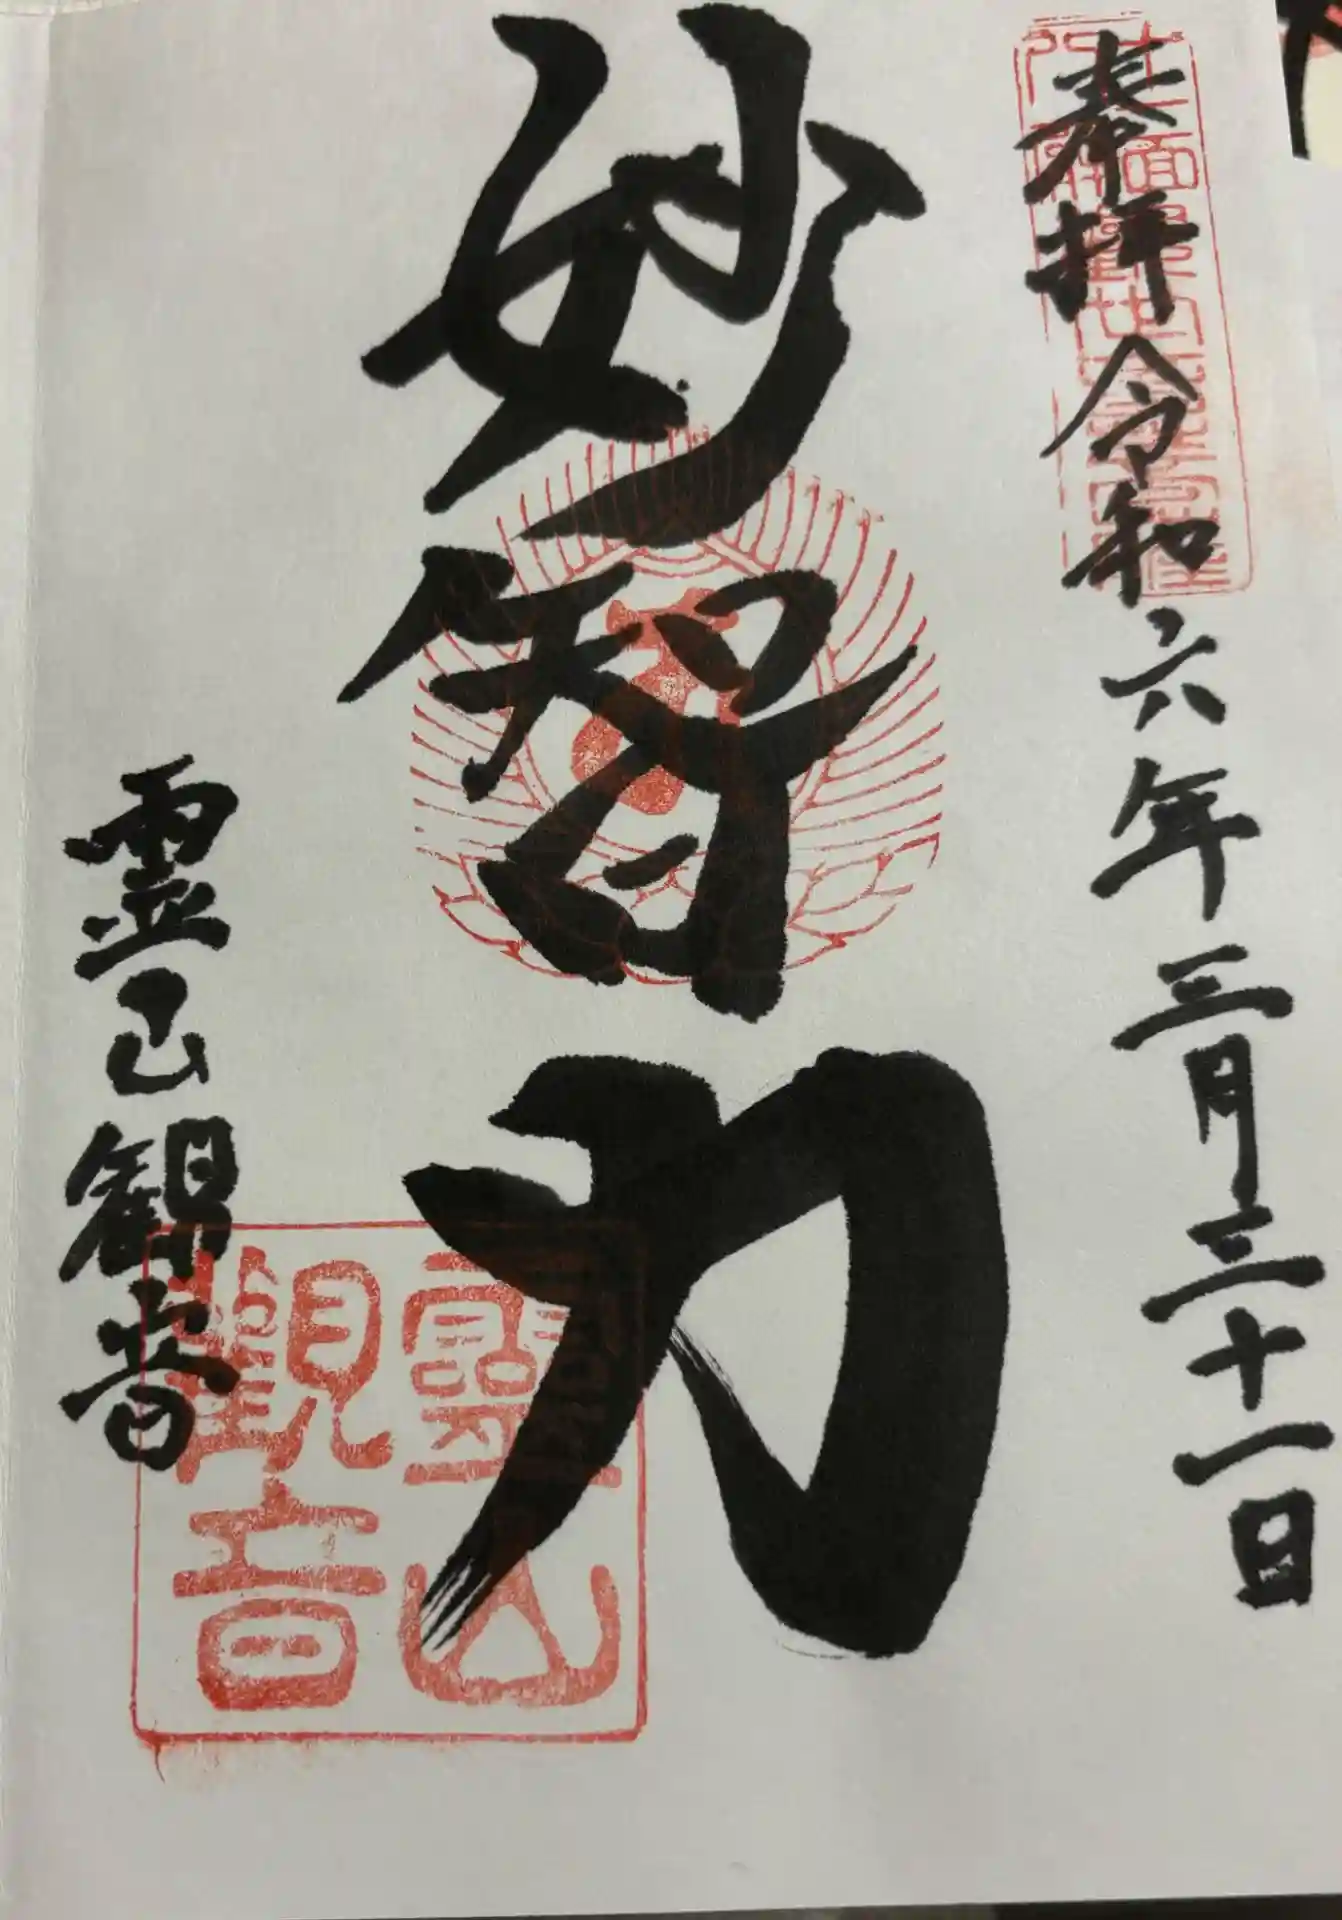 奉拝 令和六年三月三十一日
妙智力
霊山観音
靈山
觀音